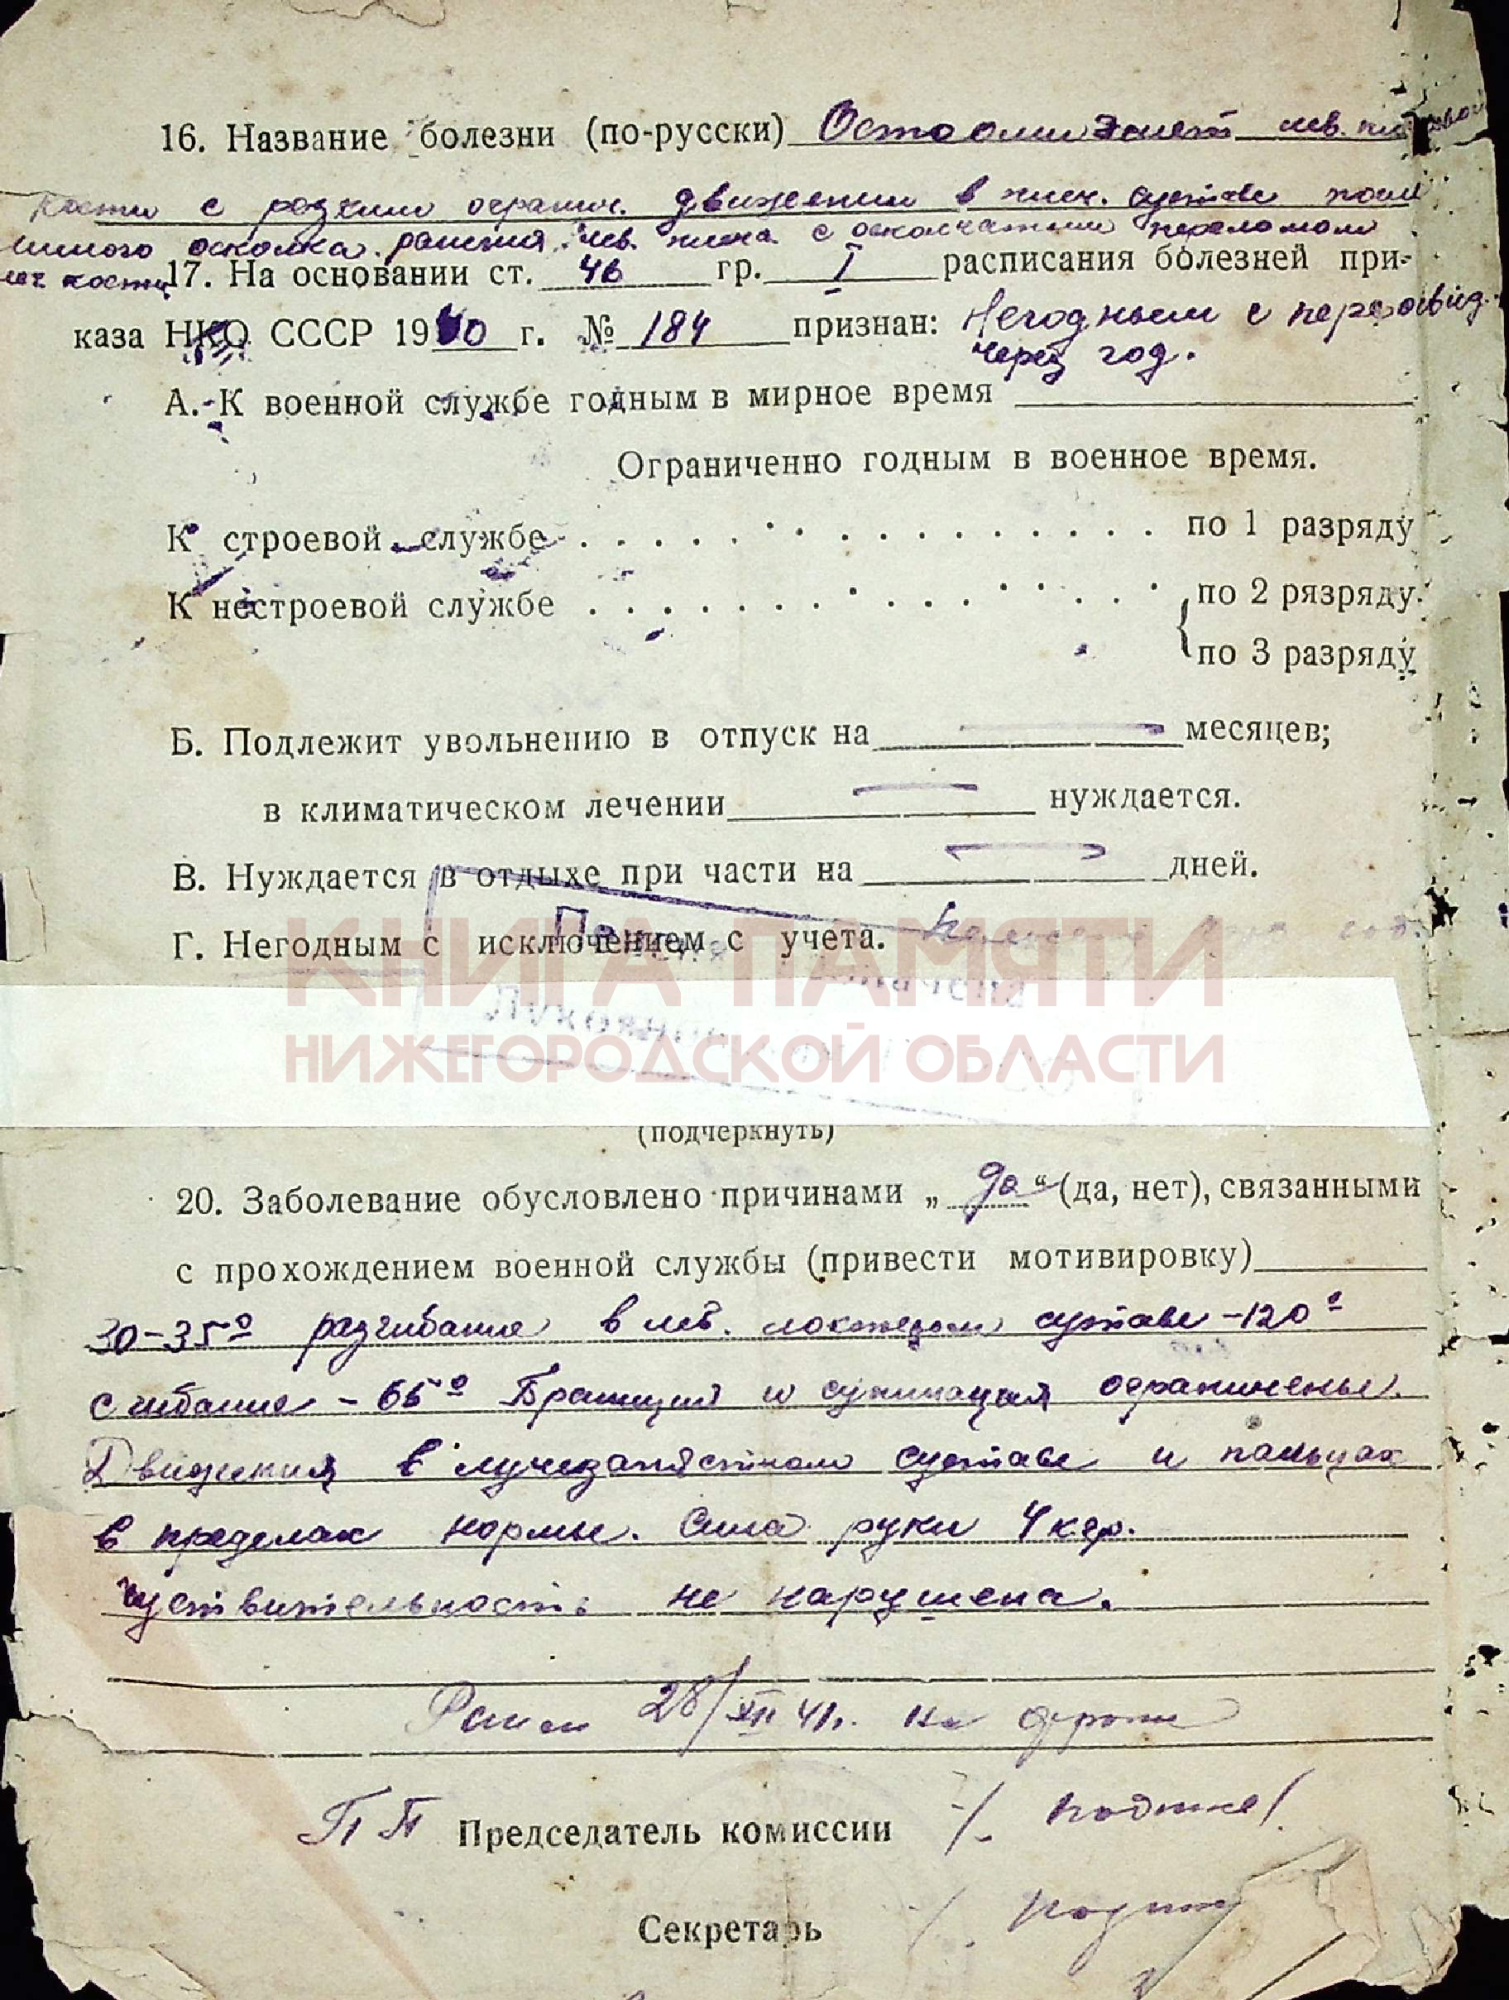 16. Название болезни (по-русски) Остеомиэлит лев. плечевой
кости с резким огранич. движении в плеч. суставе после
осколка. ранения лев. плеча с оскольчатым переломом
плеч кости
17. На основании ст. 46 гр. I расписания болезней при-
каза НКО СССР 1940 г. № 184 признан: Негодным с переосвид.
через год.
А. К военной службе годным в мирное время
Ограниченно годным в военное время.
К строевой службе . . . . . . . . . . . . . . . . по 1 разряду
К нестроевой службе . . . . . . . . . . . . . . . по 2 рязряду.
по 3 разряду
Б. Подлежит увольнению в отпуск на месяцев;
в климатическом лечении нуждается.
В. Нуждается в отдыхе при части на дней.
Г. Негодным с исключением с учета.
КНИГА ПАМЯТИ
НИЖЕГОРОДСКОЙ ОБЛАСТИ
(подчеркнуть)
20. Заболевание обусловлено причинами „да“ (да, нет), связанными
с прохождением военной службы (привести мотивировку)
30-35° разгибание в лев. локтевом суставе -120°
сгибание - 65° Пронация и супинация ограничены.
Движения в лучезапястном суставе и пальцах
в пределах нормы. Сила руки 4 кгр.
Чуствительность не нарушена.
Ранен 28/XII 41г. на фронте
ПП Председатель комиссии /. подпись/.
Секретарь /. подпись